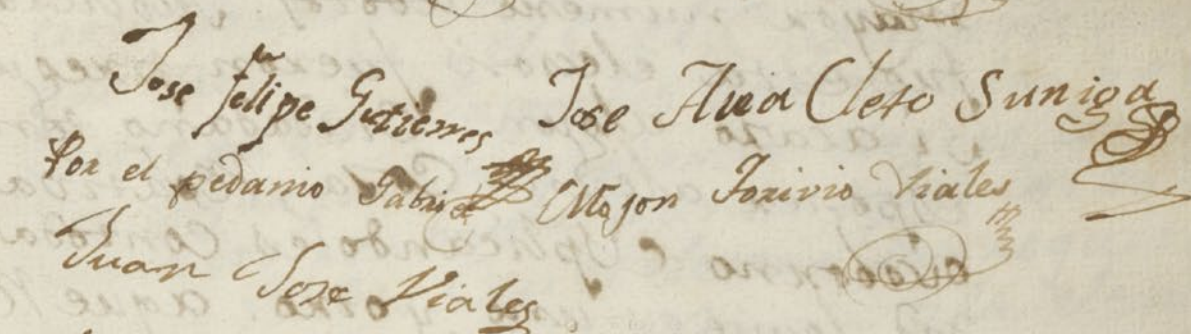 Jose felipe Gutierres Jose Ana Cleto Suniga
Por el pedanio Gabriel Mojon Torivio Viales
Juan Jose Viales